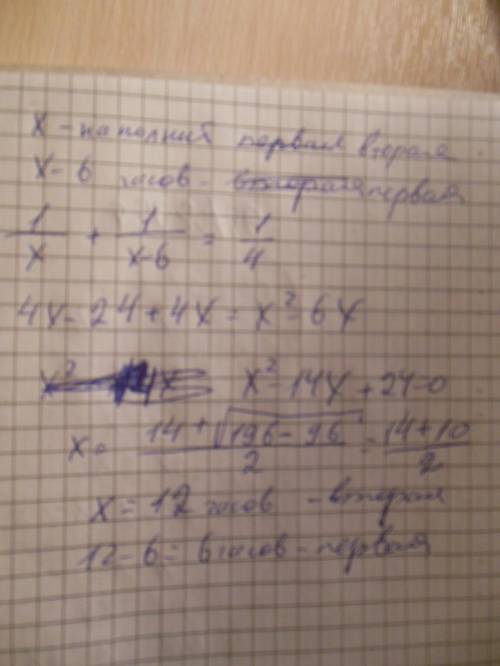 x - наполнит вторая
x-6 часов - первая
1/x + 1/(x-6) = 1/4
4x - 24 + 4x = x² - 6x
x² - 14x + 24 = 0
x = (14 + √(196 - 96))/2 = (14 + 10)/2
x = 12 часов - вторая
12 - 6 = 6 часов - первая